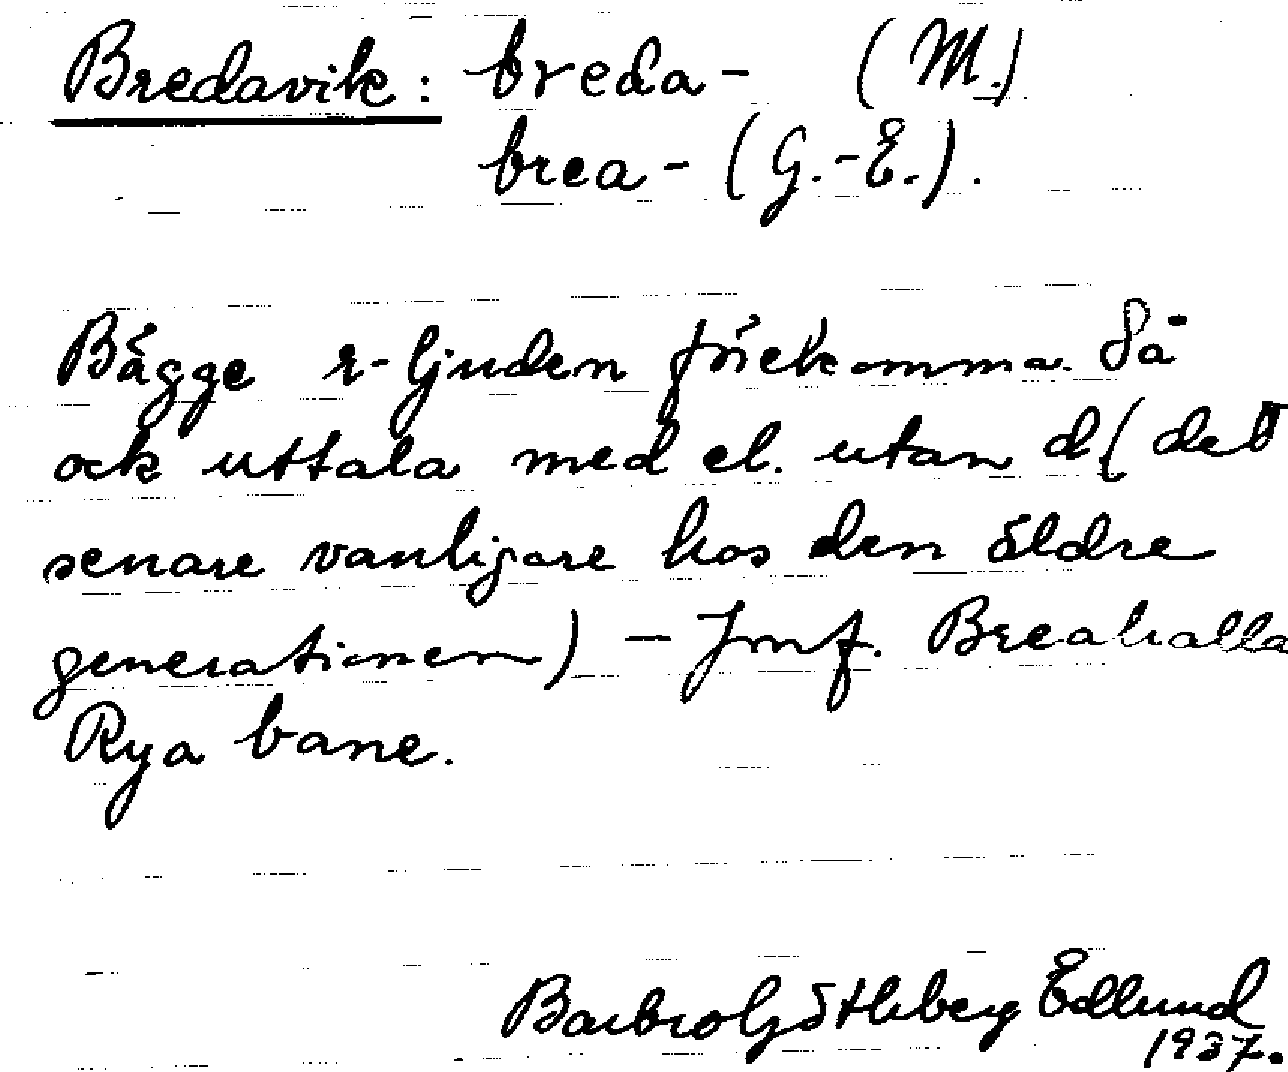 Bredavik: breda- (M.)
brea- (G.-E.).
Bägge r-ljuden förekomma. Så
ock uttala med el. utan d (det
senare vanligare hos den äldre
generationen) - Jmf. Breahalla
Rya bane.
Barbro Götheberg Edlund
1937.